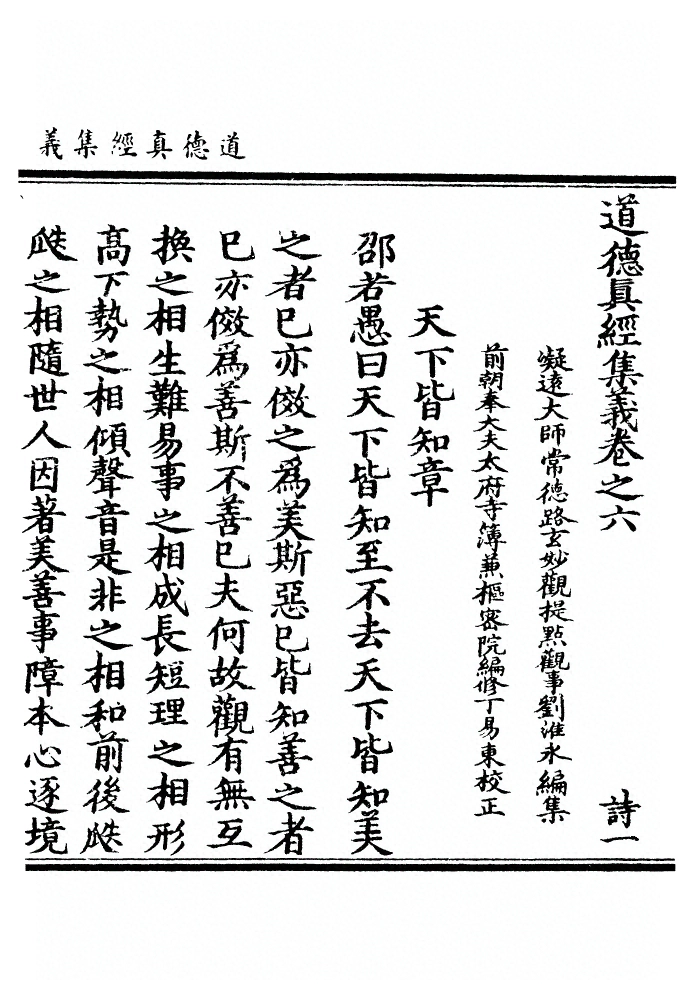 道德真經集義
道德眞經集義卷之六　詩一
凝遠大師常德路玄妙觀提點觀事劉淮水編集
前朝奉大夫太府寺簿兼樞密院編修丁易東校正
天下皆知章
邵若愚曰天下皆知至不去天下皆知美
之者巳亦傚之爲美斯惡巳皆知善之者
巳亦傚爲善斯不善巳夫何故觀有無互
換之相生難易事之相成長短理之相形
高下勢之相傾聲音是非之相和前後跌
跌之相隨世人因著美善事障本心逐境